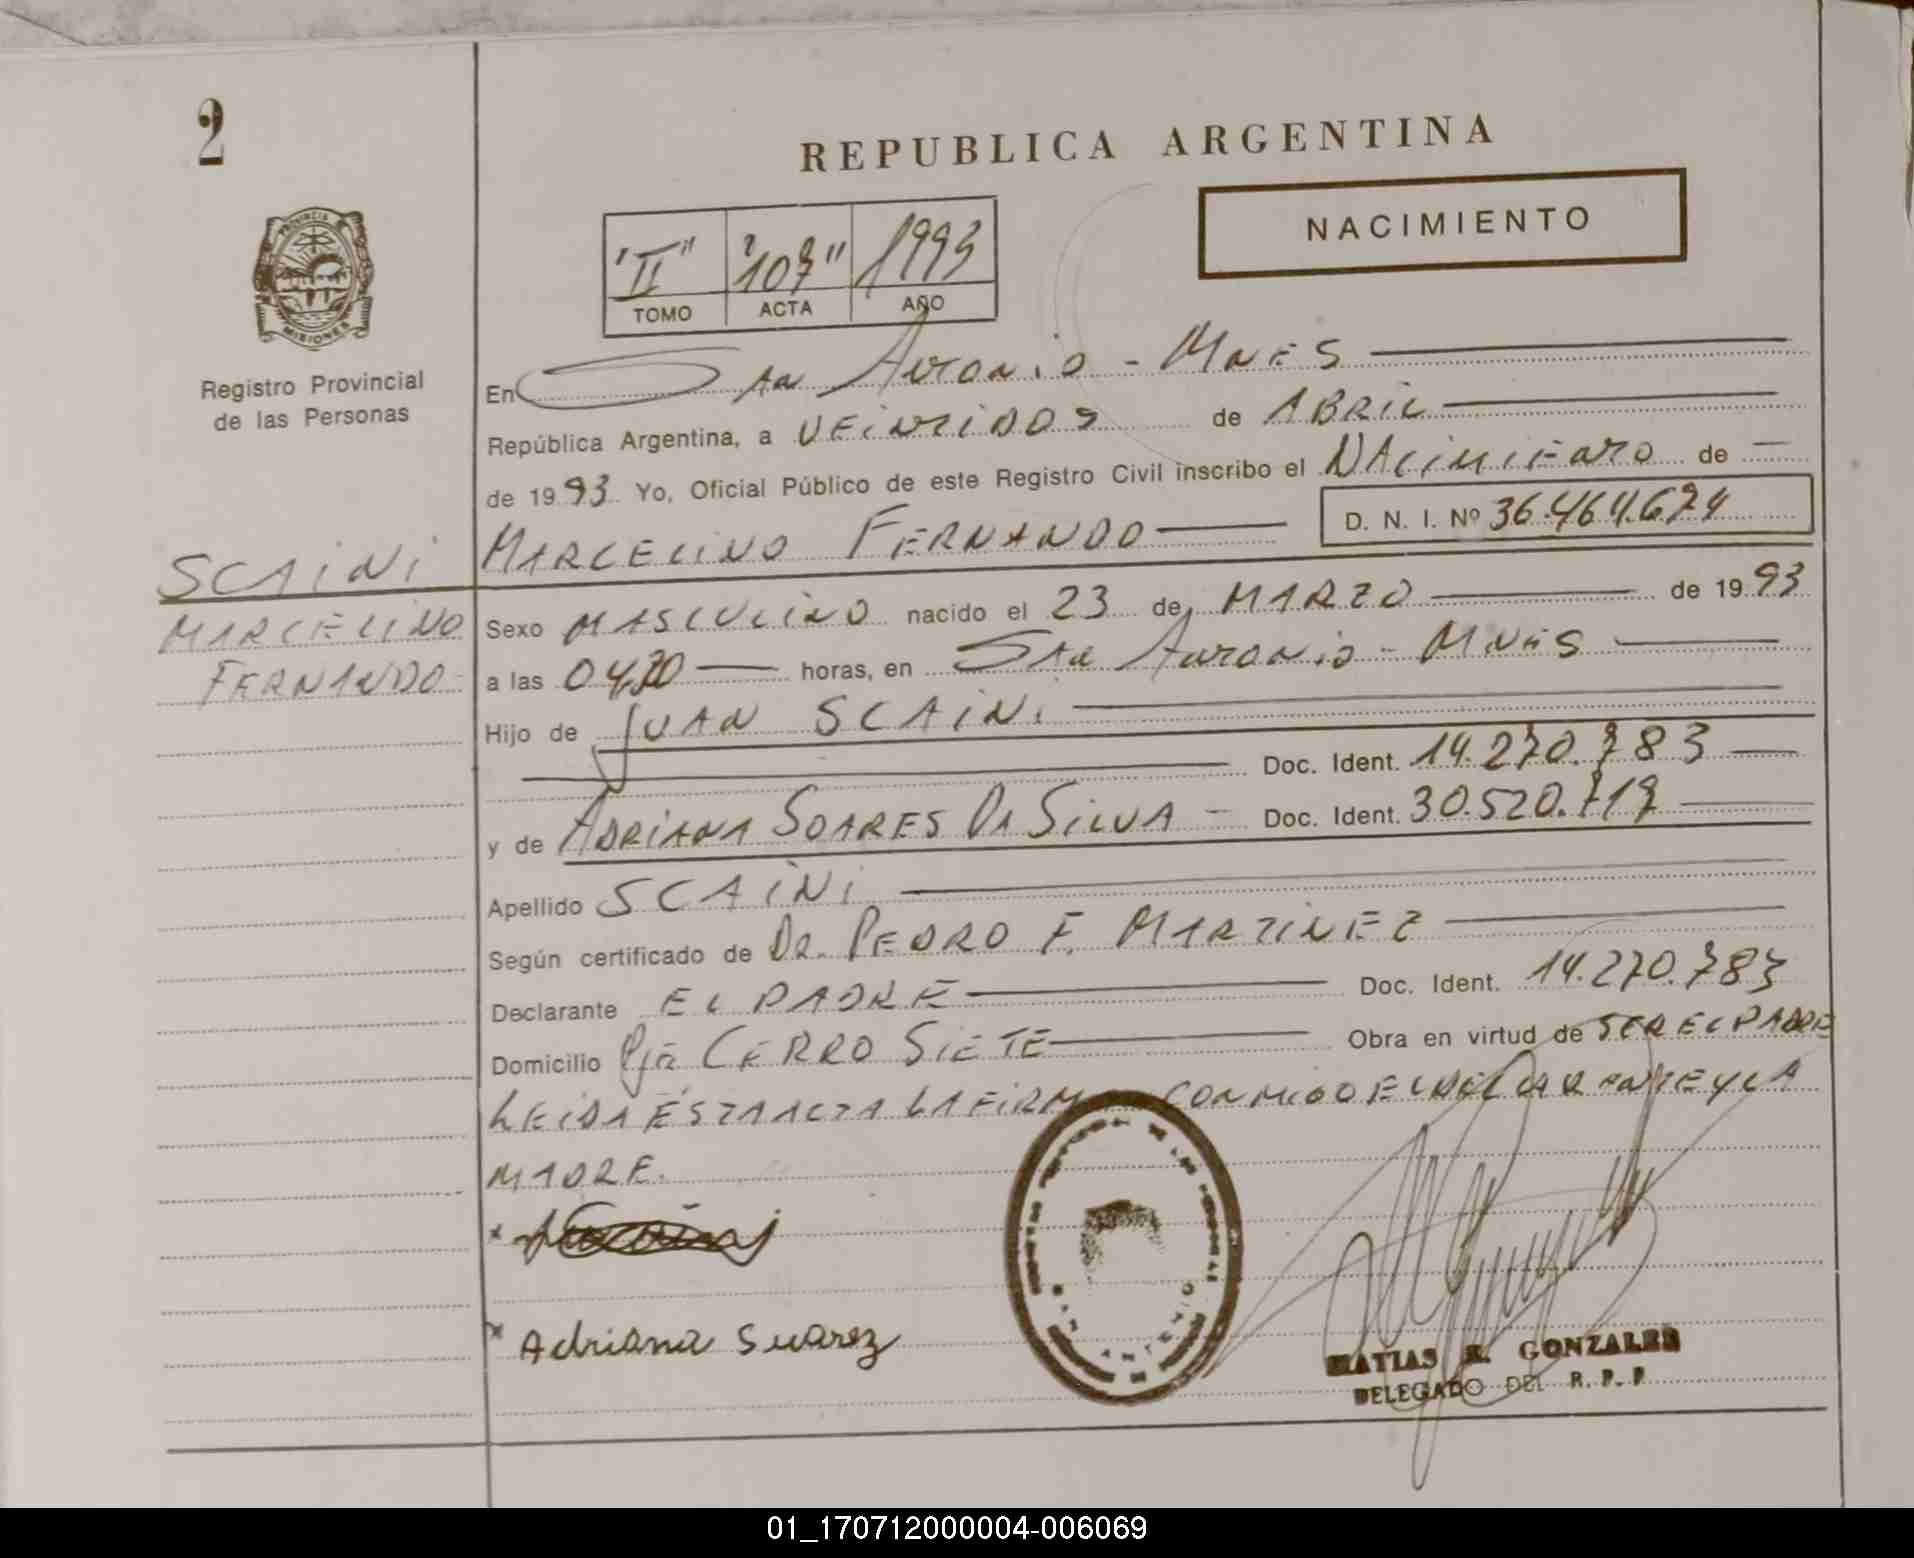 2
REPUBLICA ARGENTINA
NACIMIENTO
"II" "107" 1993
TOMO ACTA AÑO
PROVINCIA DE
MISIONES
Registro Provincial
de las Personas
SCAINI
MARCELINO
FERNANDO
En San Antonio - Mnes
República Argentina, a VEINTIDOS de ABRIL
de 1993 Yo, Oficial Público de este Registro Civil inscribo el NACIMIENTO de
MARCELINO FERNANDO D. N. I. Nº 36.464.674
Sexo MASCULINO nacido el 23 de MARZO de 1993
a las horas, en San Antonio - Mnes
Hijo de JUAN SCAINI
Doc. Ident. 14.270.783
y de ADRIANA SOARES DA SILVA - Doc. Ident. 30.520.717
Apellido SCAINI
Según certificado de DR. PEDRO F. MARTINEZ
Declarante EL PADRE Doc. Ident. 14.270.783
Domicilio Pje CERRO SIETE Obra en virtud de SER EL PADRE
LEIDA ESTA ACTA LA FIRMA CONMIGO EL DECLARANTE Y LA
MADRE.
x
x Adriana Suarez
SAN ANTONIO
MATIAS R. GONZALES
DELEGADO DEL R. P. P.
01_170712000004-006069